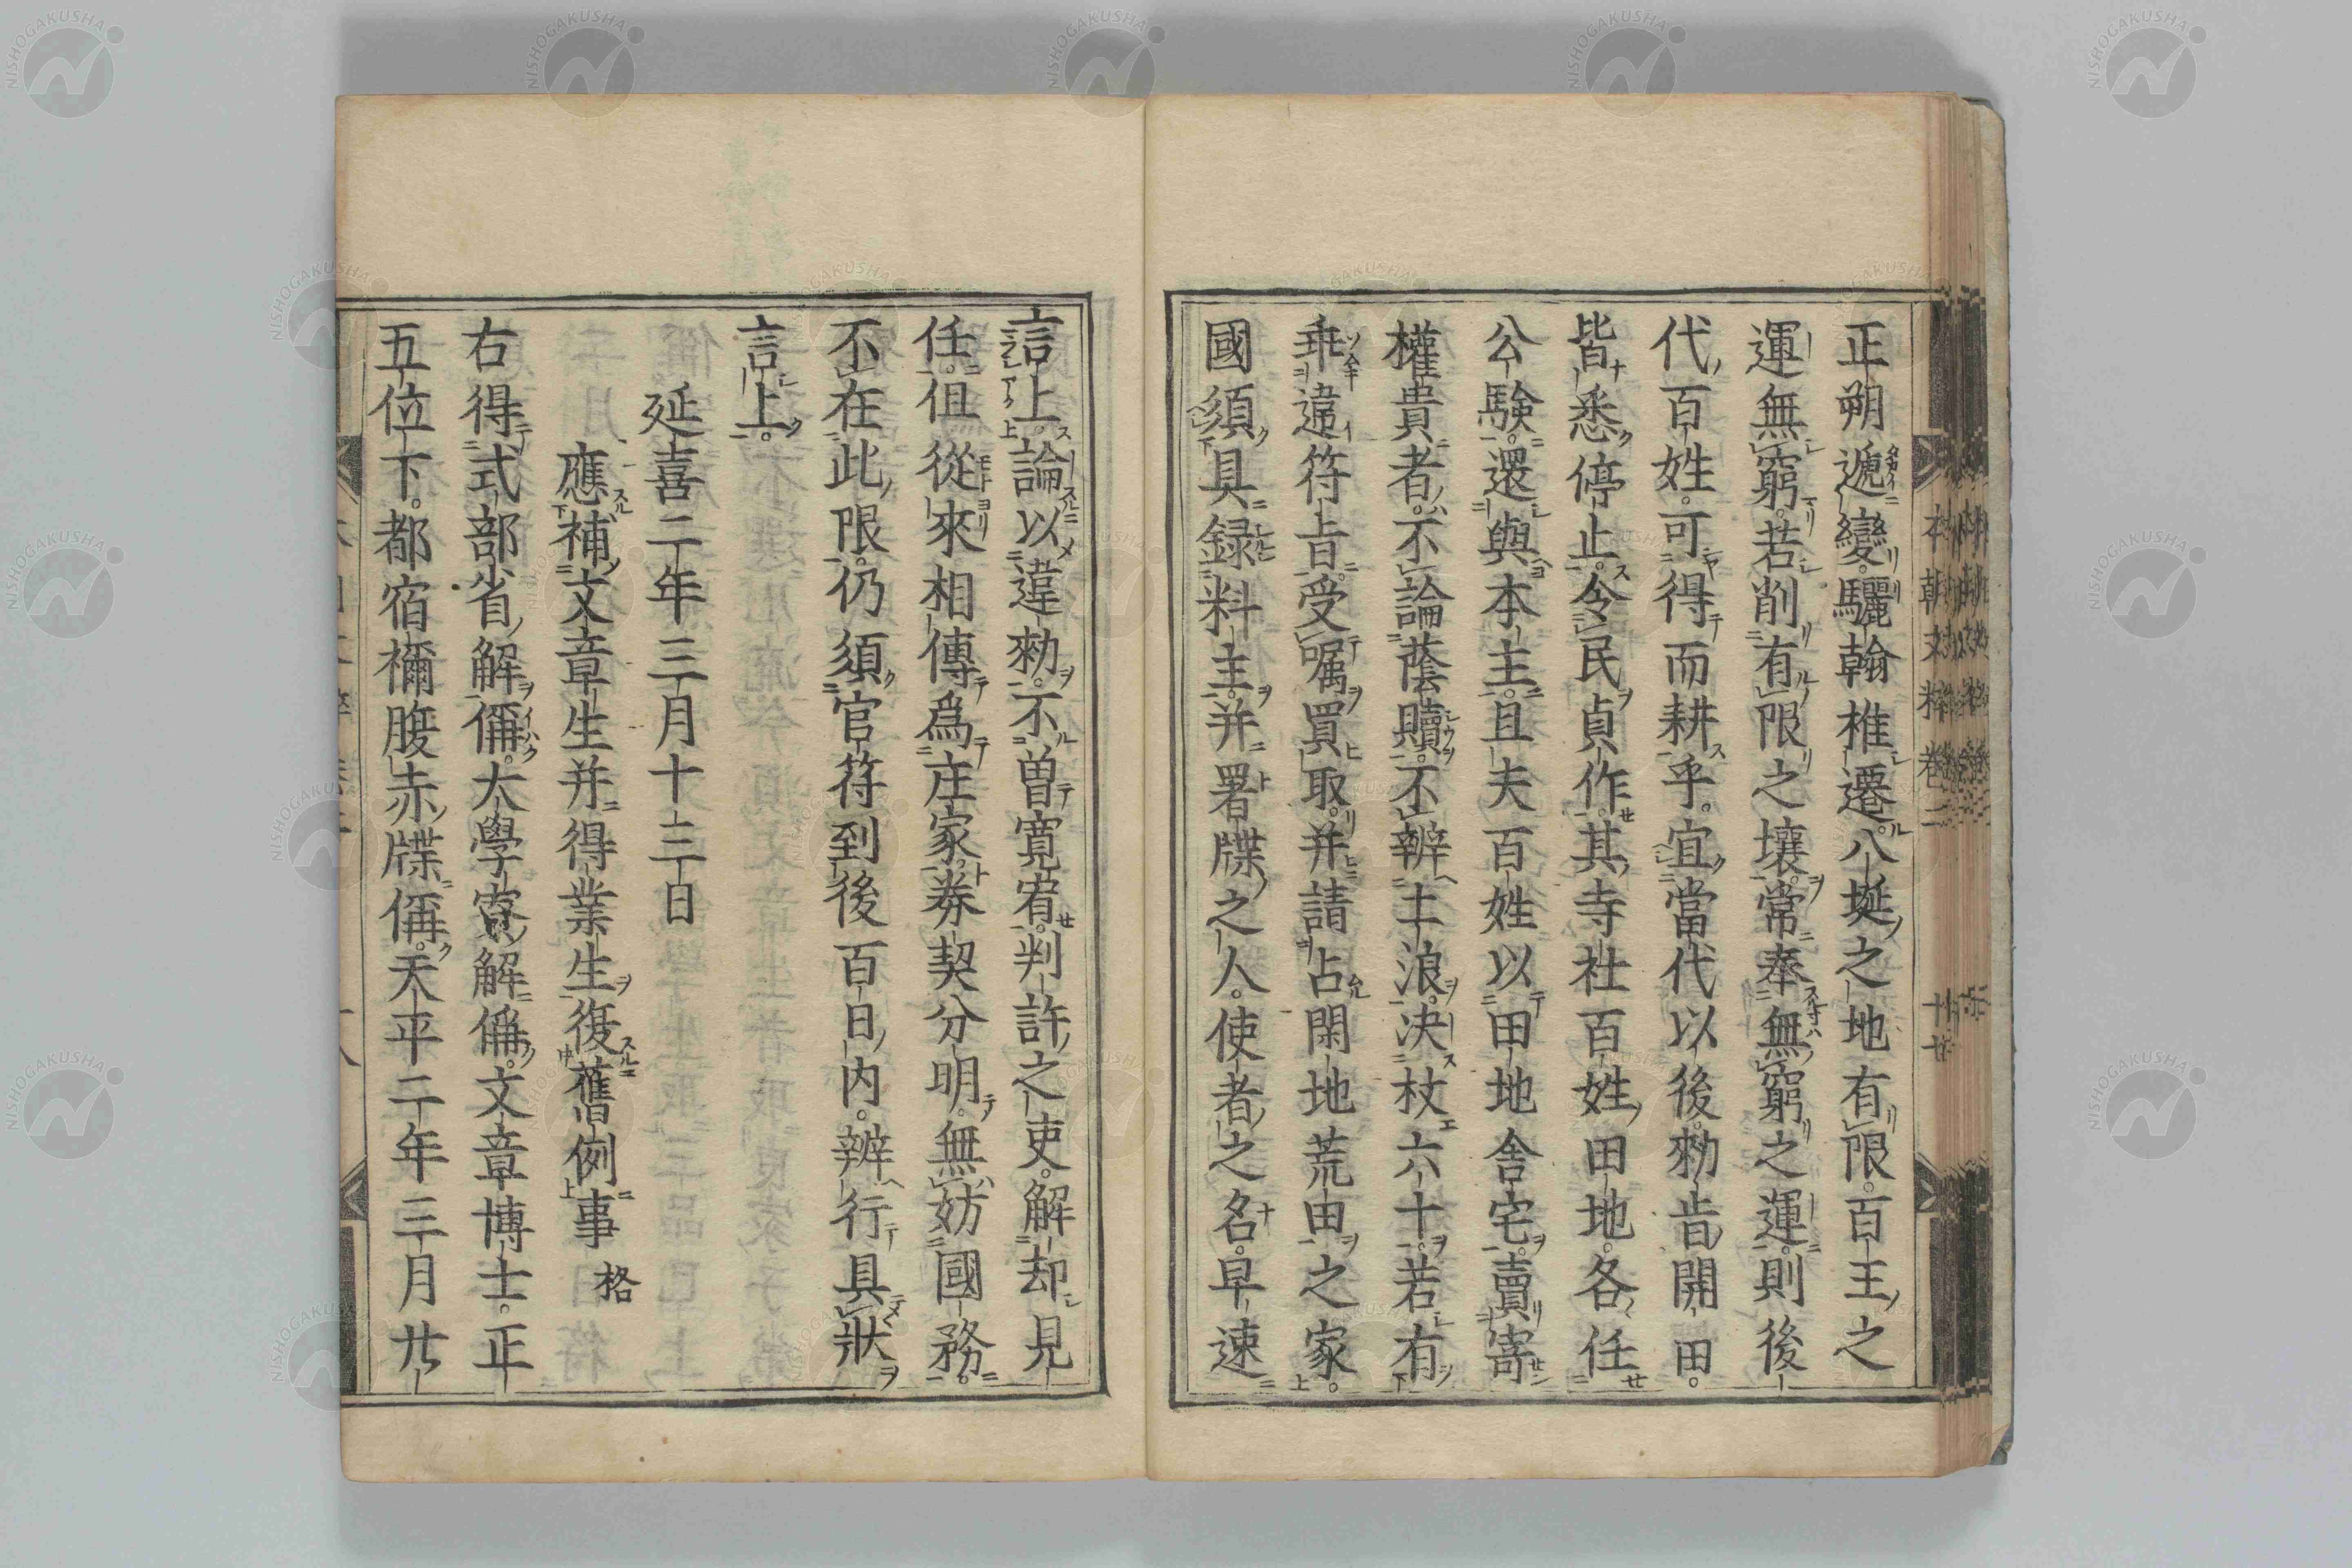 正朔遞變。驪翰椎遷。八埏之地有限。百王之
運無窮。若削有限之壤。常奉無窮之運。則後
代百姓。可得而耕乎。宜當代以後。勅旨開田。
皆悉停止。令民貞作。其寺社百姓田地。各任
公驗。還與本主。且夫百姓以田地舍宅。賣寄
權貴者。不論蔭贖。不辨土浪。决杖六十。若有
乖違符旨。受嘱買取。并請占閑地荒田之家。
國須具録料主。并署牒之人。使者之名。早速
言上。論以違勅。不曽寛宥。判許之吏。解却見
任。但從來相傳爲庄家。券契分明。無妨國務。
不在此限。仍須官符到後百日内。辨行具狀
言上。
延喜二年三月十三日
應補文章生并得業生復舊例事 格
右得式部省解偁。大學寮解偁。文章博士。正
五位下。都宿禰腹赤牒偁。天平二年三月廿
本朝文粹卷二
NISHOGAKUSHA